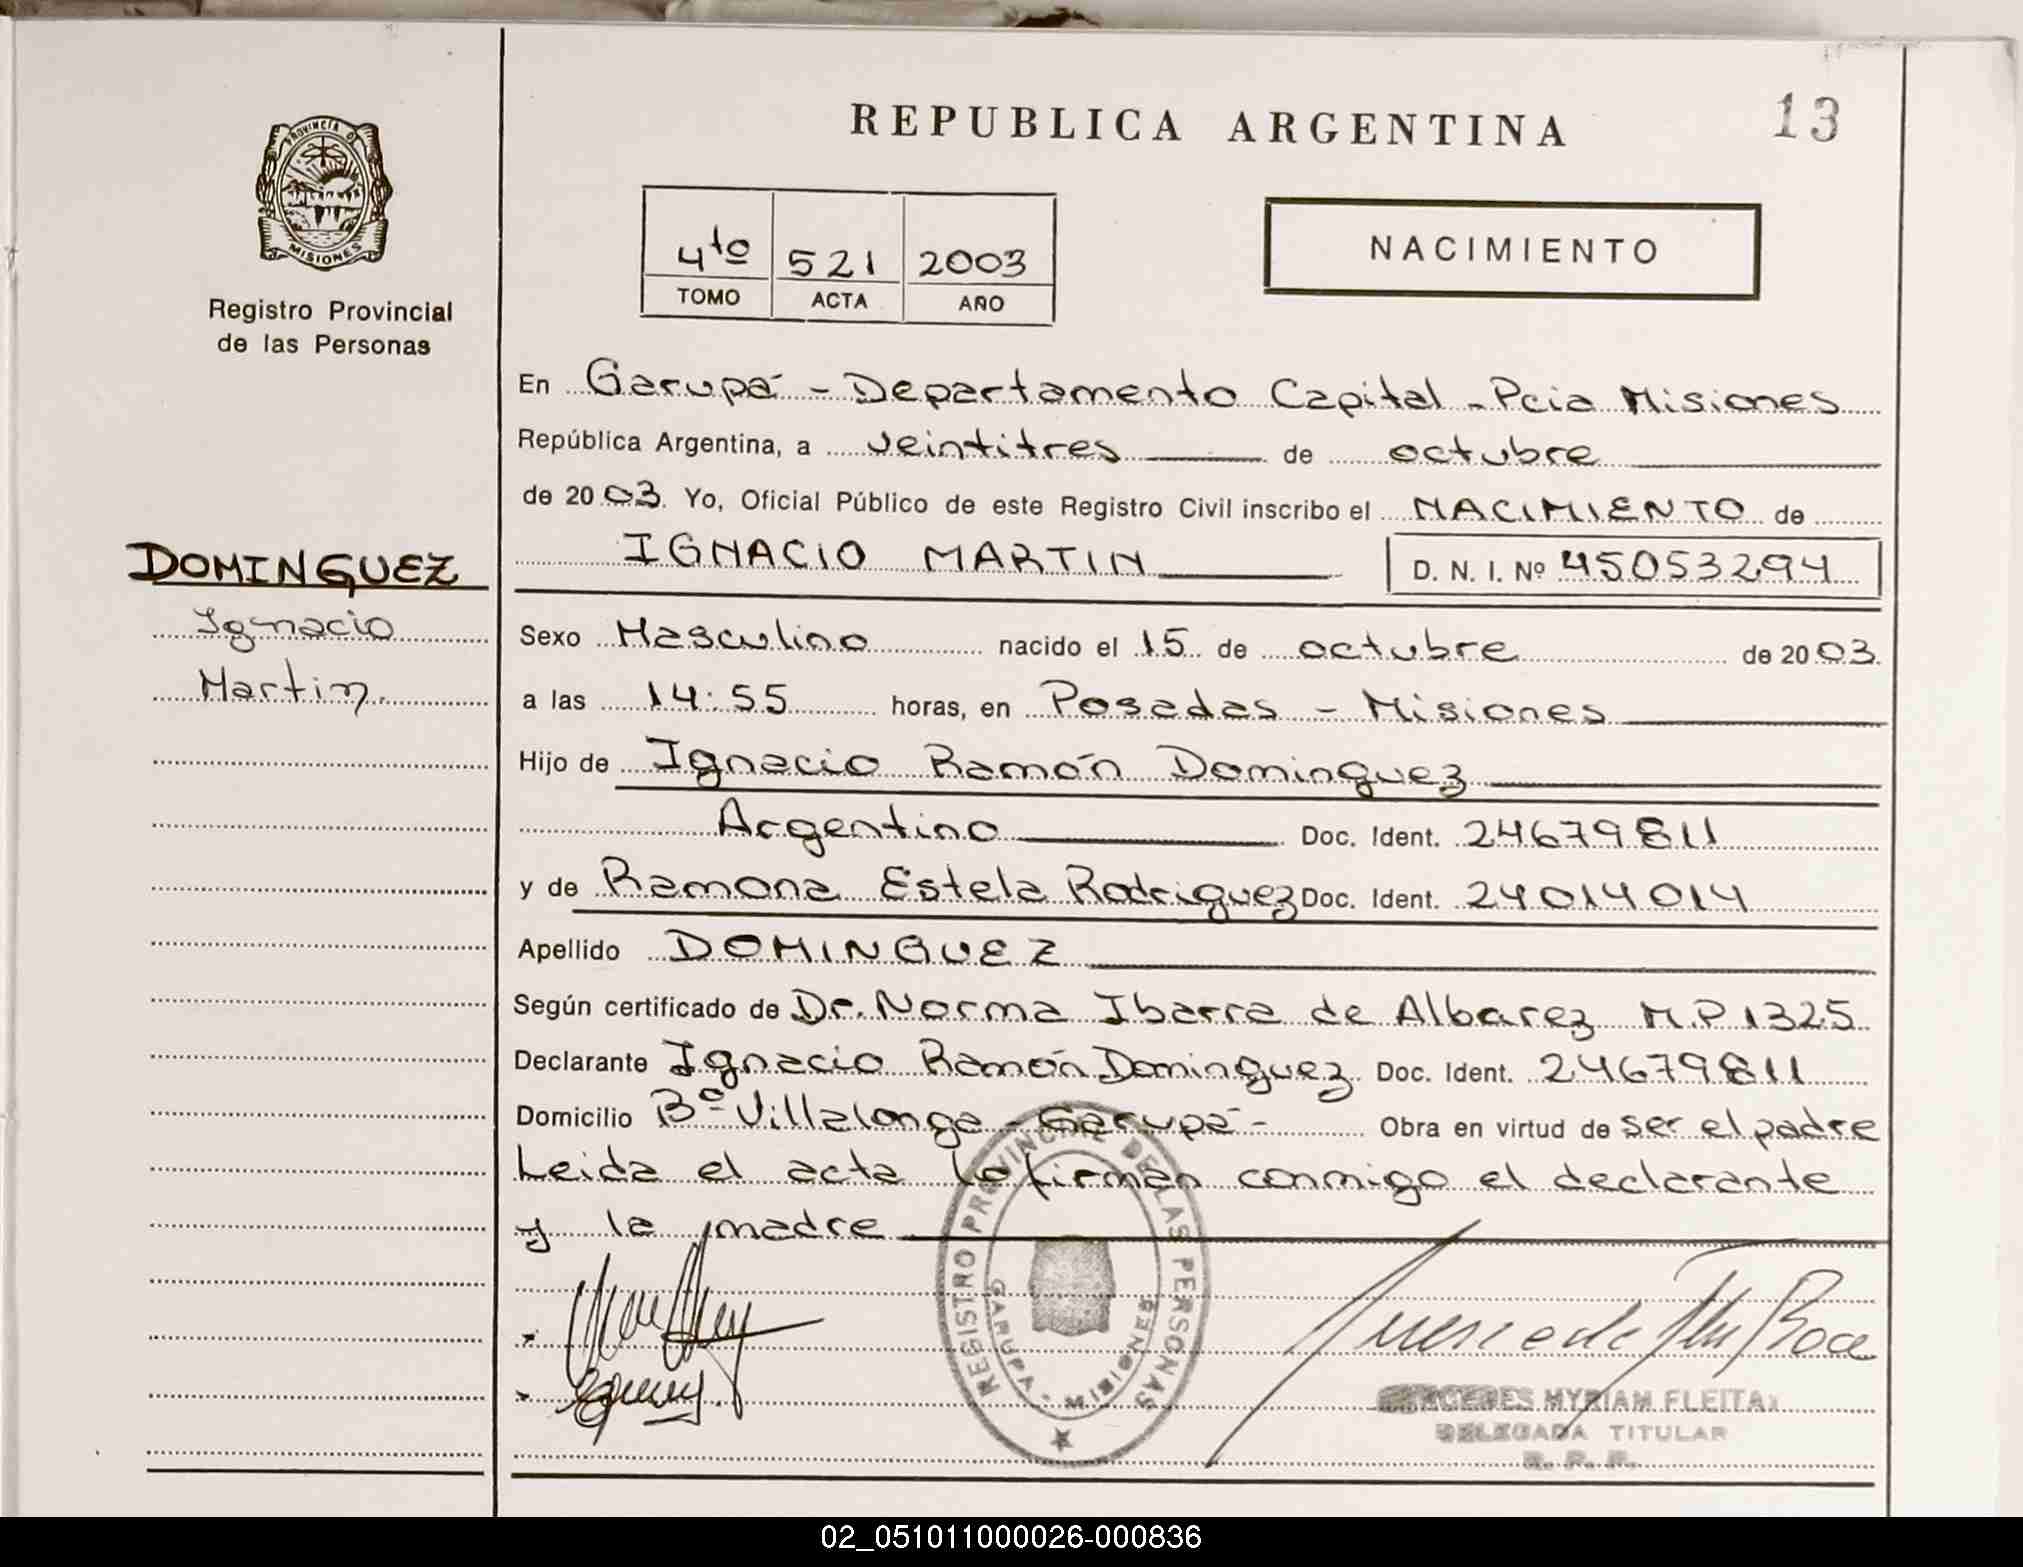 REPUBLICA ARGENTINA
13
PROVINCIA DE
MISIONES
Registro Provincial
de las Personas
4to 521 2003
TOMO ACTA AÑO
NACIMIENTO
En Garupá - Departamento Capital - Pcia Misiones
República Argentina, a veintitres de octubre
de 2003. Yo, Oficial Público de este Registro Civil inscribo el NACIMIENTO de
IGNACIO MARTIN D. N. I. Nº 45053294
DOMINGUEZ
Ignacio
Martin.
Sexo Masculino nacido el 15 de octubre de 2003.
a las 14:55 horas, en Posadas - Misiones
Hijo de Ignacio Ramón Dominguez
Argentino Doc. Ident. 24679811
y de Ramona Estela Rodriguez Doc. Ident. 24014014
Apellido DOMINGUEZ
Según certificado de Dr. Norma Ibarra de Albarez M.P 1325
Declarante Ignacio Ramón Dominguez Doc. Ident. 24679811
Domicilio Bº Villalonga - Garupá - Obra en virtud de ser el padre
Leida el acta la firman conmigo el declarante
y la madre
REGISTRO PROVINCIAL DE LAS PERSONAS
GARUPA - MISIONES
MERCEDES MYRIAM FLEITAS
DELEGADA TITULAR
R. P. P.
02_051011000026-000836